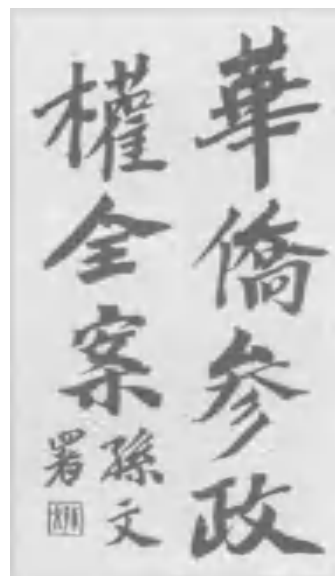 華僑參政
權全案
孫文
署